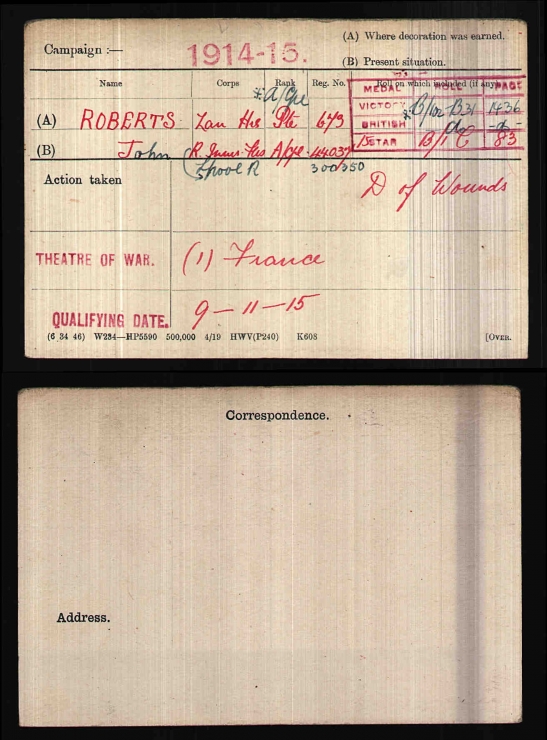 Campaign :—
1914-15.
(A) Where decoration was earned.
(B) Present situation.
Name Corps Rank Reg. No. Roll on which included (if any)
MEDAL ROLL PAGE
*A/Cpl
(A) ROBERTS Lan Hrs Pte 643
VICTORY B/102 B31 1436
BRITISH do do
(B) John R. Innis. Fus A/Cpl 44037
15 STAR B/1 C 83
L'pool R 300350
Action taken
D of Wounds
THEATRE OF WAR. (1) France
QUALIFYING DATE. 9-11-15
(6 34 46) W234—HP5590 500,000 4/19 HWV(P240) K608 [OVER.
Correspondence.
Address.